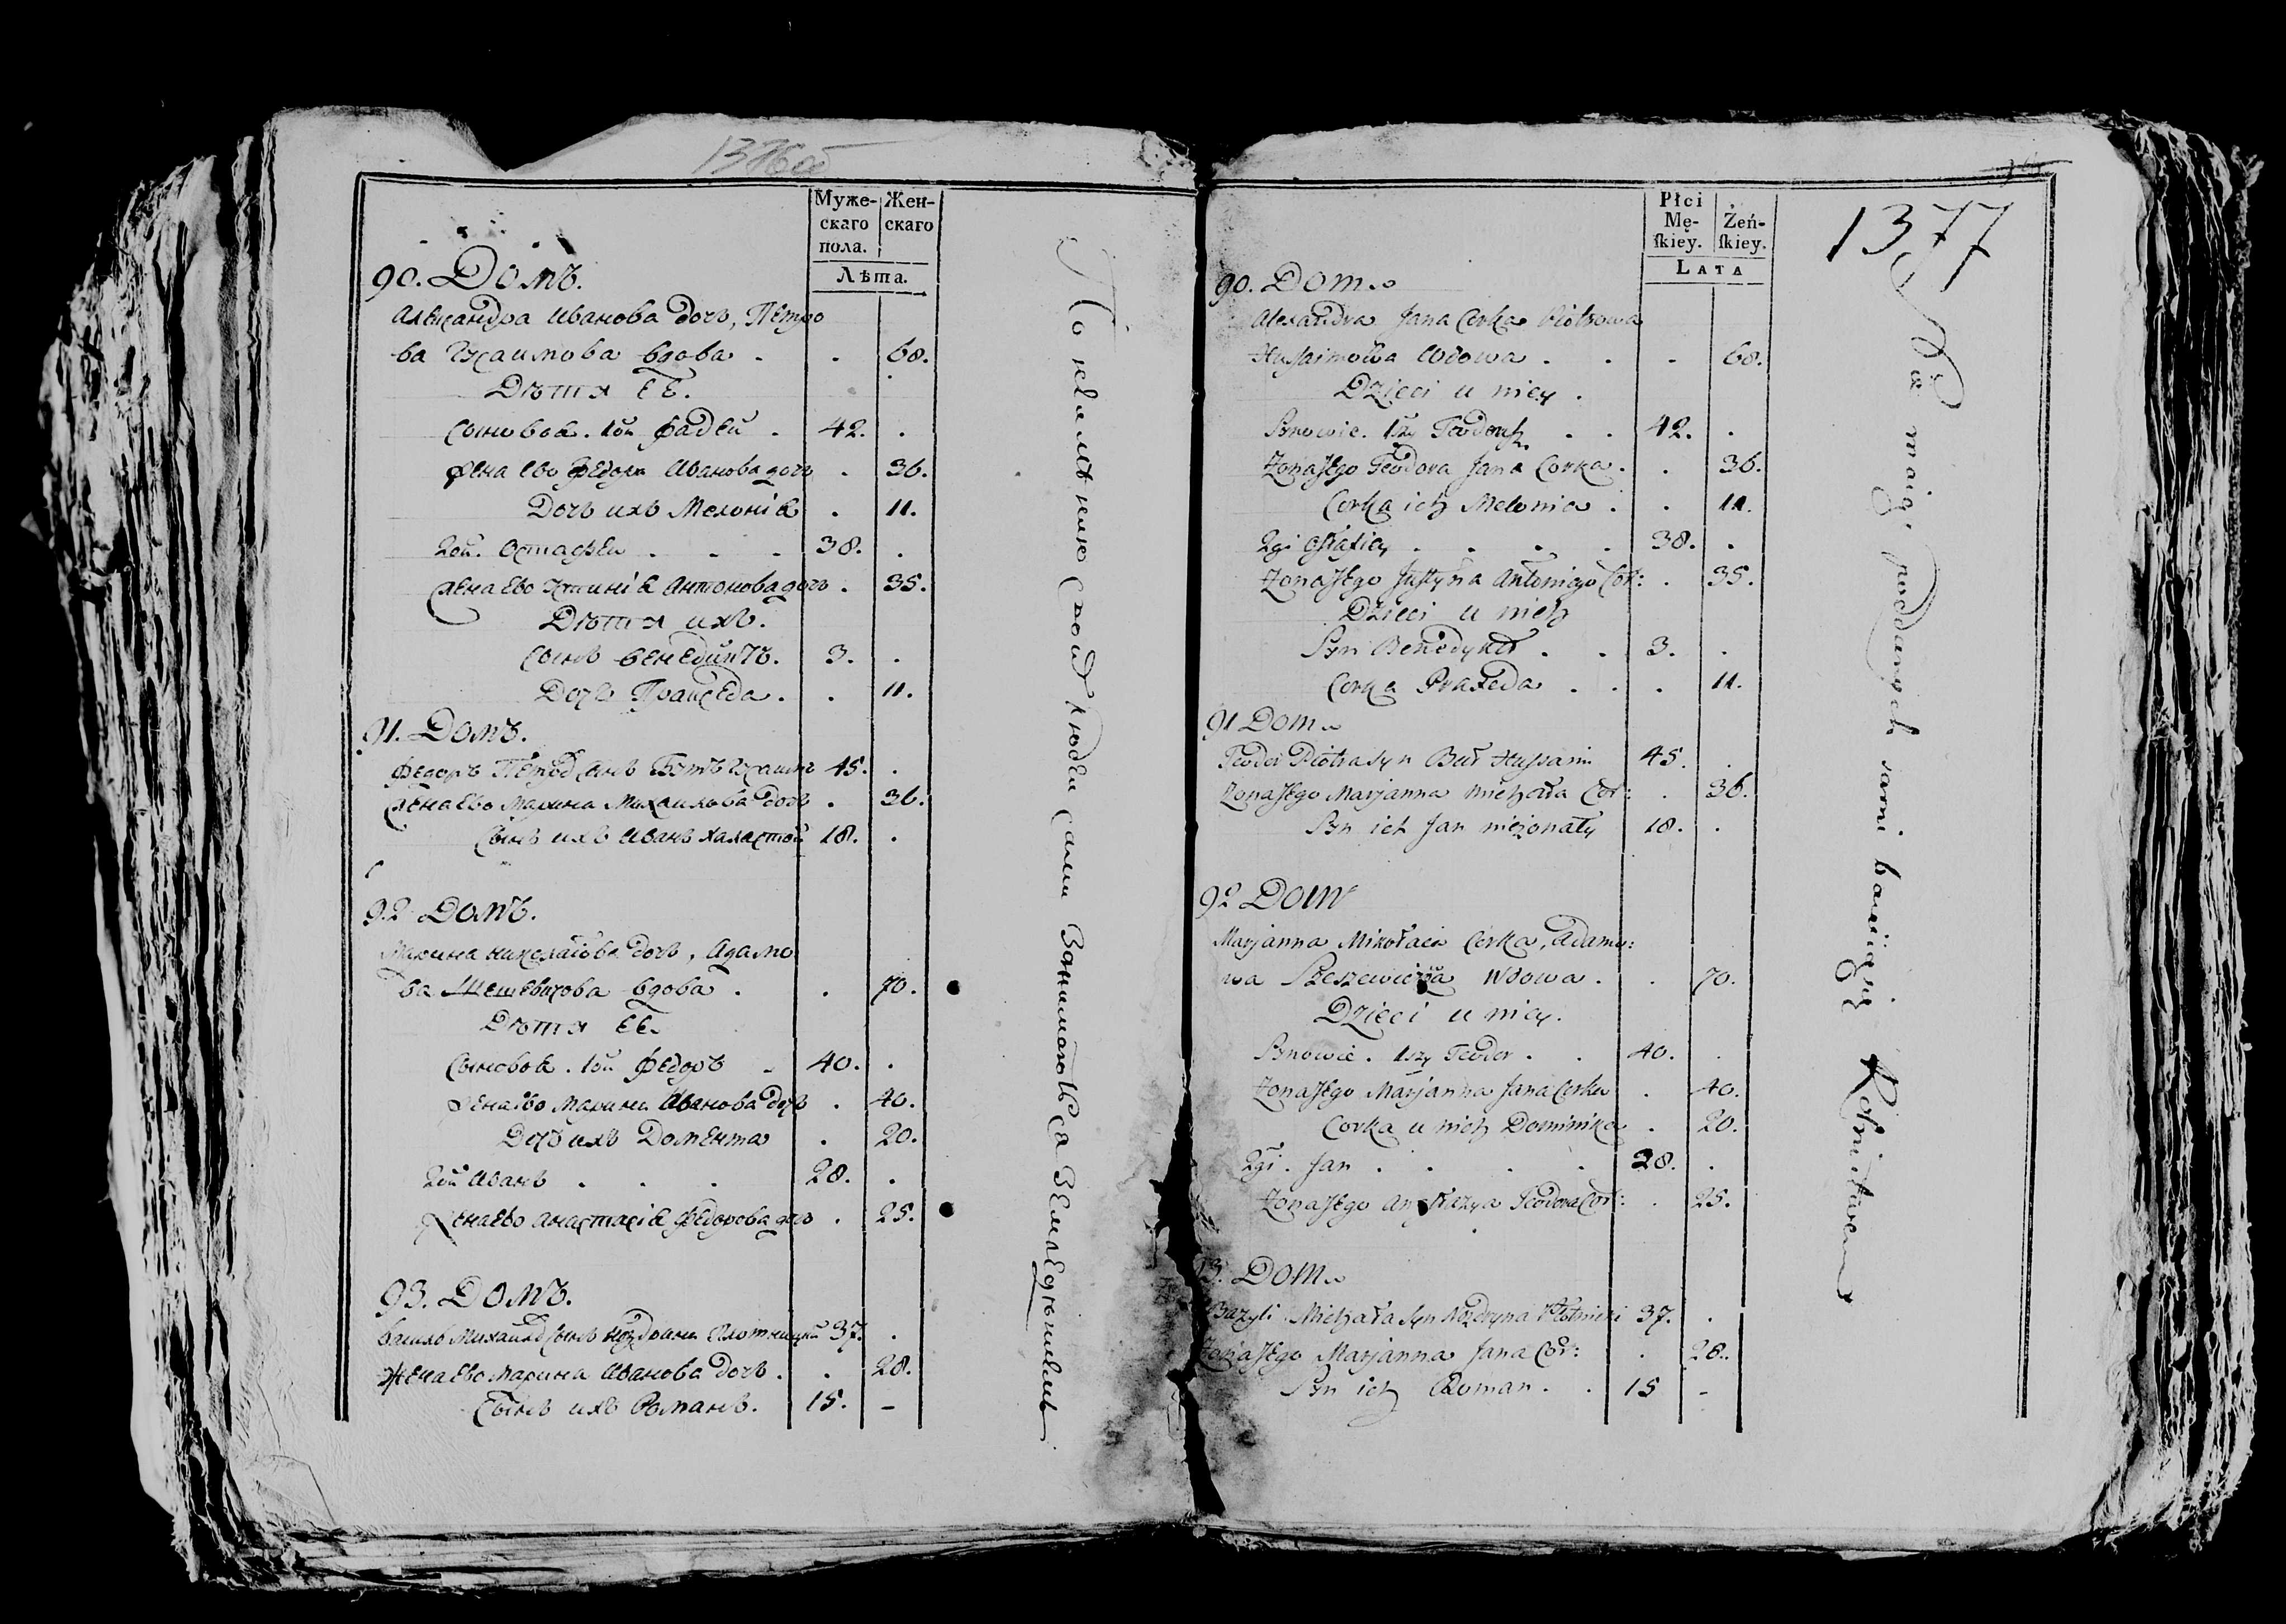 1376об
Муже-
скаго
пола.
Жен-
скаго
Лѣта.
90. Домъ.
Александра Иванова дочь, Петро
ва Гусаимова вдова . . 68.
Дѣти ее.
Сыновья. 1ой Фадей . 42. .
Жена ево Федора Иванова дочь . 36.
Дочь ихъ Мелонія . 11.
2ой. Остафей . . . 38. .
Жена ево Устинія Антонова дочь . 35.
Дѣти ихъ.
Сынъ Бенедиктъ. 3. .
Дочь Пракседа . . 11.
91. Домъ.
Федоръ Петров Сынъ Бутъ Гусаимъ 45. .
Жена ево Марина Михаилова дочь . 36.
Сынъ ихъ Иванъ халастой 18. .
92 Домъ.
Марина Николаева дочь, Адамо
ва Шешевичова вдова . . 70.
Дѣти ее.
Сыновья. 1ой Федоръ . 40. .
Жена ево Марина Иванова дочь . 40.
Дочь ихъ Доменика . 20.
2ой Иванъ . . . 28. .
Жена ево Анастасія Федорова дочь . 25.
93. Домъ.
Василь Михаилов Сынъ Ноздрина Плотницкій 37. .
Жена ево Марина Иванова дочь . . 28.
Сынъ ихъ Романъ. 15. -
По неимѣнию своих людей сами Занимаютъся Земледѣлиемъ
1377
Płci
Mę-
ſkiey.
Żeń-
ſkiey.
LATA
90. Dom.
Alexandra Jana Corka Piotrowa
Husaimowa Wdowa . . . 68.
Dzieci u niey .
Synowie. 1szy Teodeusz . . 42. .
Żona Jego Teodora Jana Corka . . 36.
Corka ich Melonia . . 11.
2gi Ostafiey . . . . 38. .
Żona Jego Justyna Antoniego Cor: . 35.
Dzieci u nich
Syn Benedykt . . 3. .
Corka Praxeda . . . 11.
91 Dom
Teodor Piotra Syn But Hussaim 45. .
Żona Jego Marjanna Michała Cor: . 36.
Syn ich Jan nieżonaty 18. .
92 Dom
Marjanna Mikołaia Corka, Adamo:
wa Szeszewiczowa Wdowa . . 70.
Dzieci u niey.
Synowie. 1szy Teodor . . 40. .
Żona Jego Marjanna Jana Corka . 40.
Corka u nich Dominika . 20.
2gi. Jan . . . . 28. .
Żona Jego Anastazya Teodora Cor: . 25.
93. Dom
Bazyli Michała Syn Nozdryna Płotnicki 37. .
Żona Jego Marjanna Jana Cor: . 28.
Syn ich Roman . . 15 -
Nie maią poddanych sami bawią się Rolnictwem